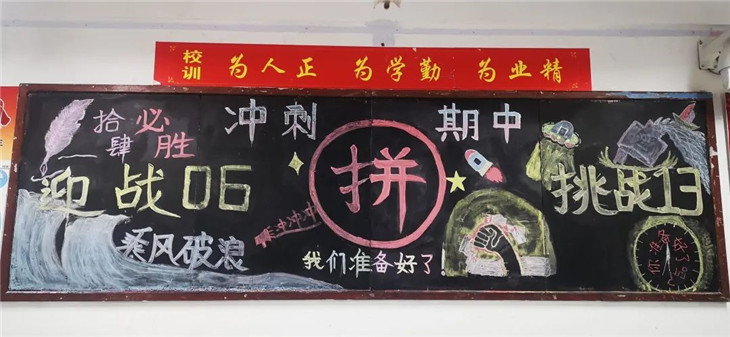 校训 为人正 为学勤 为业精
拾肆必胜
冲刺
期中
迎战06
拼
挑战13
乘风破浪
冲冲冲
我们准备好了
你准备好了吗